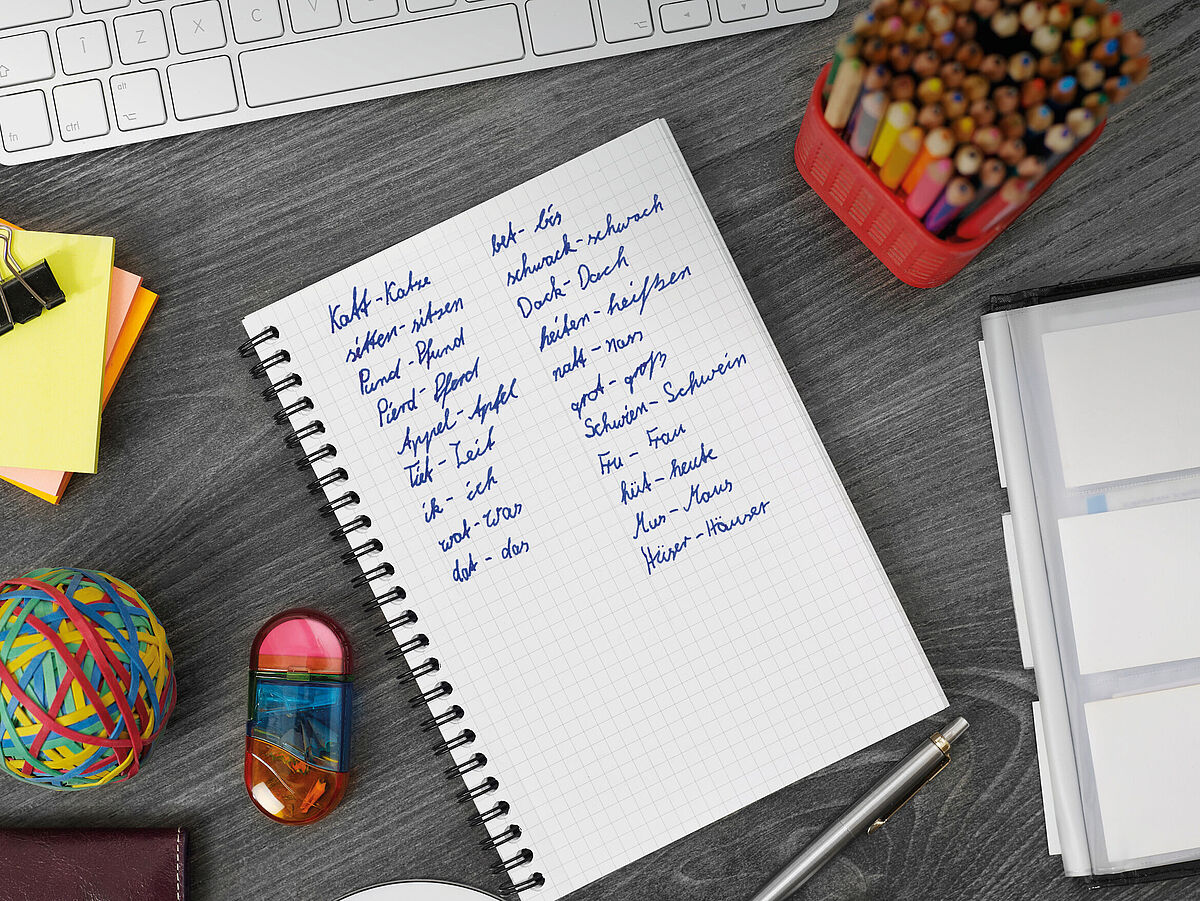 Z X C V
fn ctrl alt
Katt-Katze
sitten-sitzen
Pund-Pfund
Pierd-Pferd
Appel-Apfel
Tiet-Zeit
ik-ich
wat-was
dat-das
bet-bis
schwack-schwach
Dack-Dach
heiten-heißen
natt-nass
grot-groß
Schwien-Schwein
Fru-Frau
hüt-heute
Mus-Maus
Hüser-Häuser